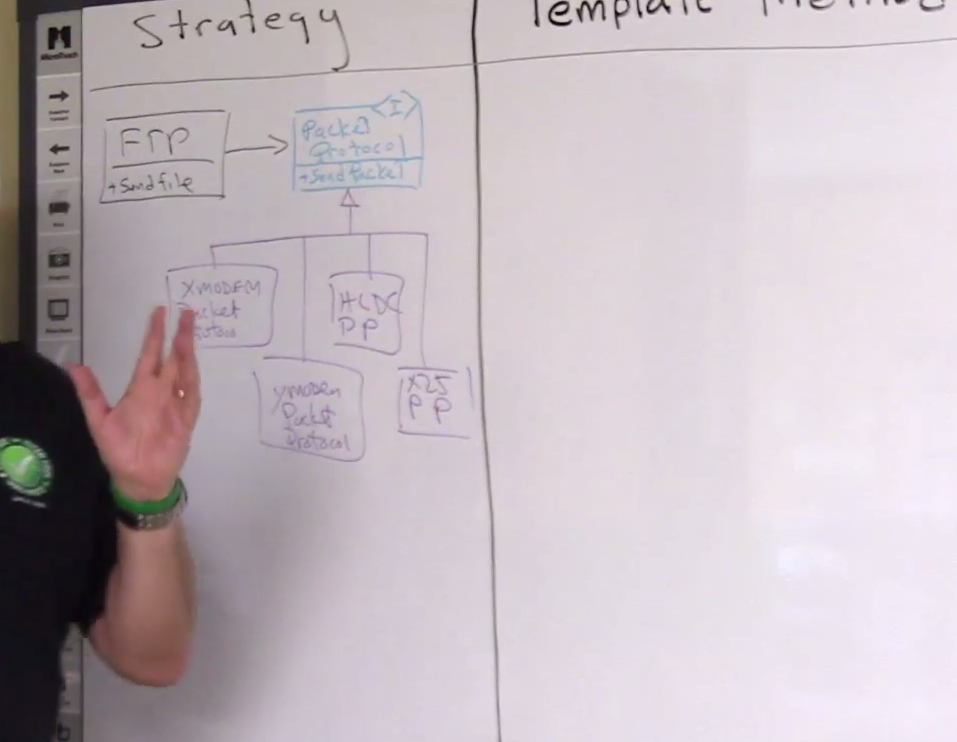 Strategy
Template Method
FTP
+Sendfile
<I>
Packet
Protocol
+SendPacket
XMODEM
Packet
Protocol
HLDC
P P
ymodem
Packet
Protocol
X25
P P